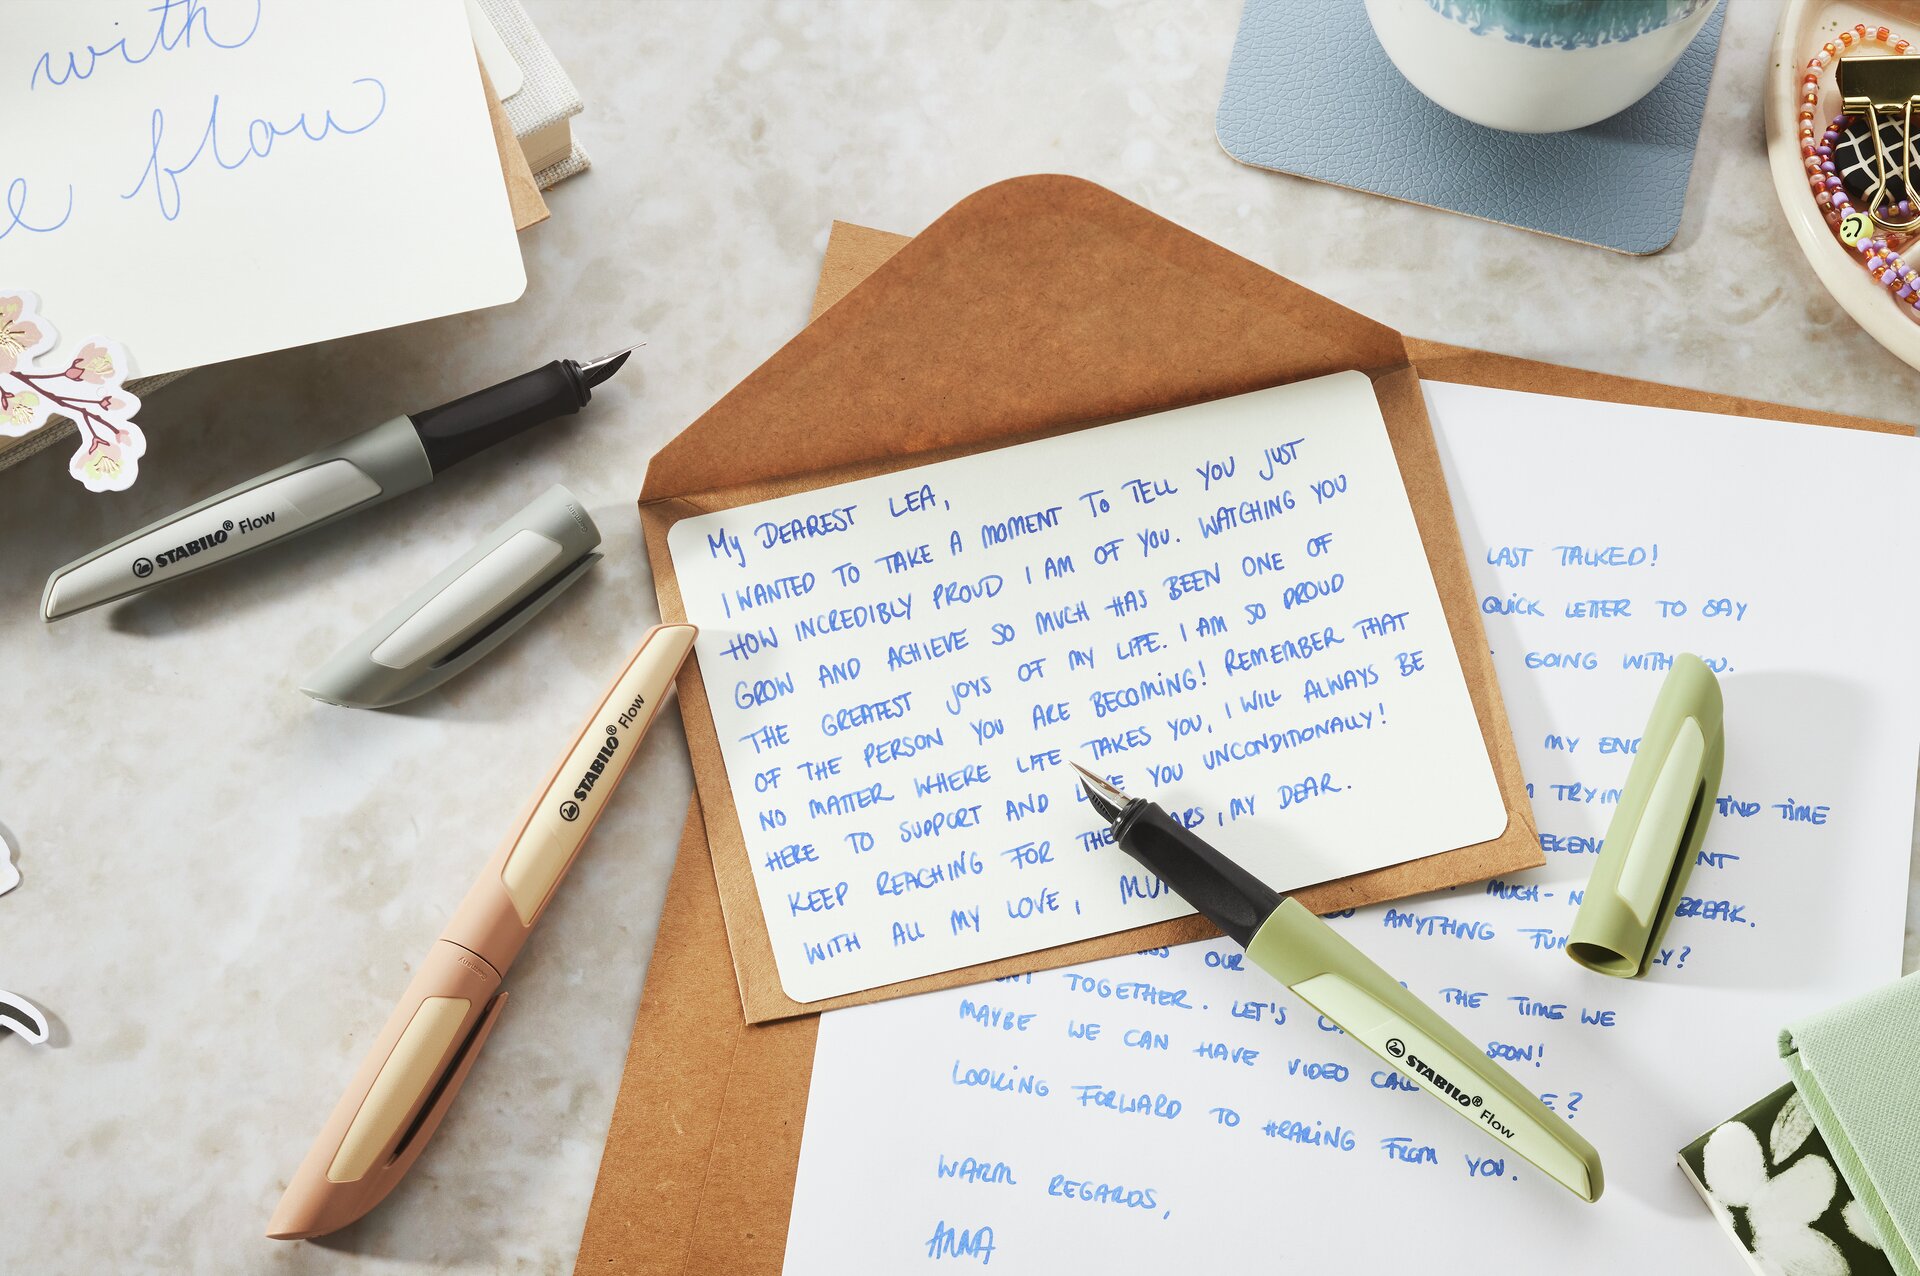 with
e flow
STABILO® Flow
Germany
STABILO® Flow
Germany
My DEAREST LEA,
I WANTED TO TAKE A MOMENT TO TELL YOU JUST
HOW INCREDIBLY PROUD I AM OF YOU. WATCHING YOU
GROW AND ACHIEVE SO MUCH HAS BEEN ONE OF
THE GREATEST JOYS OF MY LIFE. I AM SO PROUD
OF THE PERSON YOU ARE BECOMING! REMEMBER THAT
NO MATTER WHERE LIFE TAKES YOU, I WILL ALWAYS BE
HERE TO SUPPORT AND LOVE YOU UNCONDITIONALLY!
KEEP REACHING FOR THE STARS, MY DEAR.
WITH ALL MY LOVE, MUM
LAST TALKED!
QUICK LETTER TO SAY
GOING WITH YOU.
MY END
TRYING FIND TIME
MUCH- BREAK.
ANYTHING FUN
OUR
TOGETHER. LET'S THE TIME WE
MAYBE WE CAN HAVE VIDEO CALL SOON!
LOOKING FORWARD TO HEARING FROM YOU.
WARM REGARDS,
ANNA
STABILO® Flow